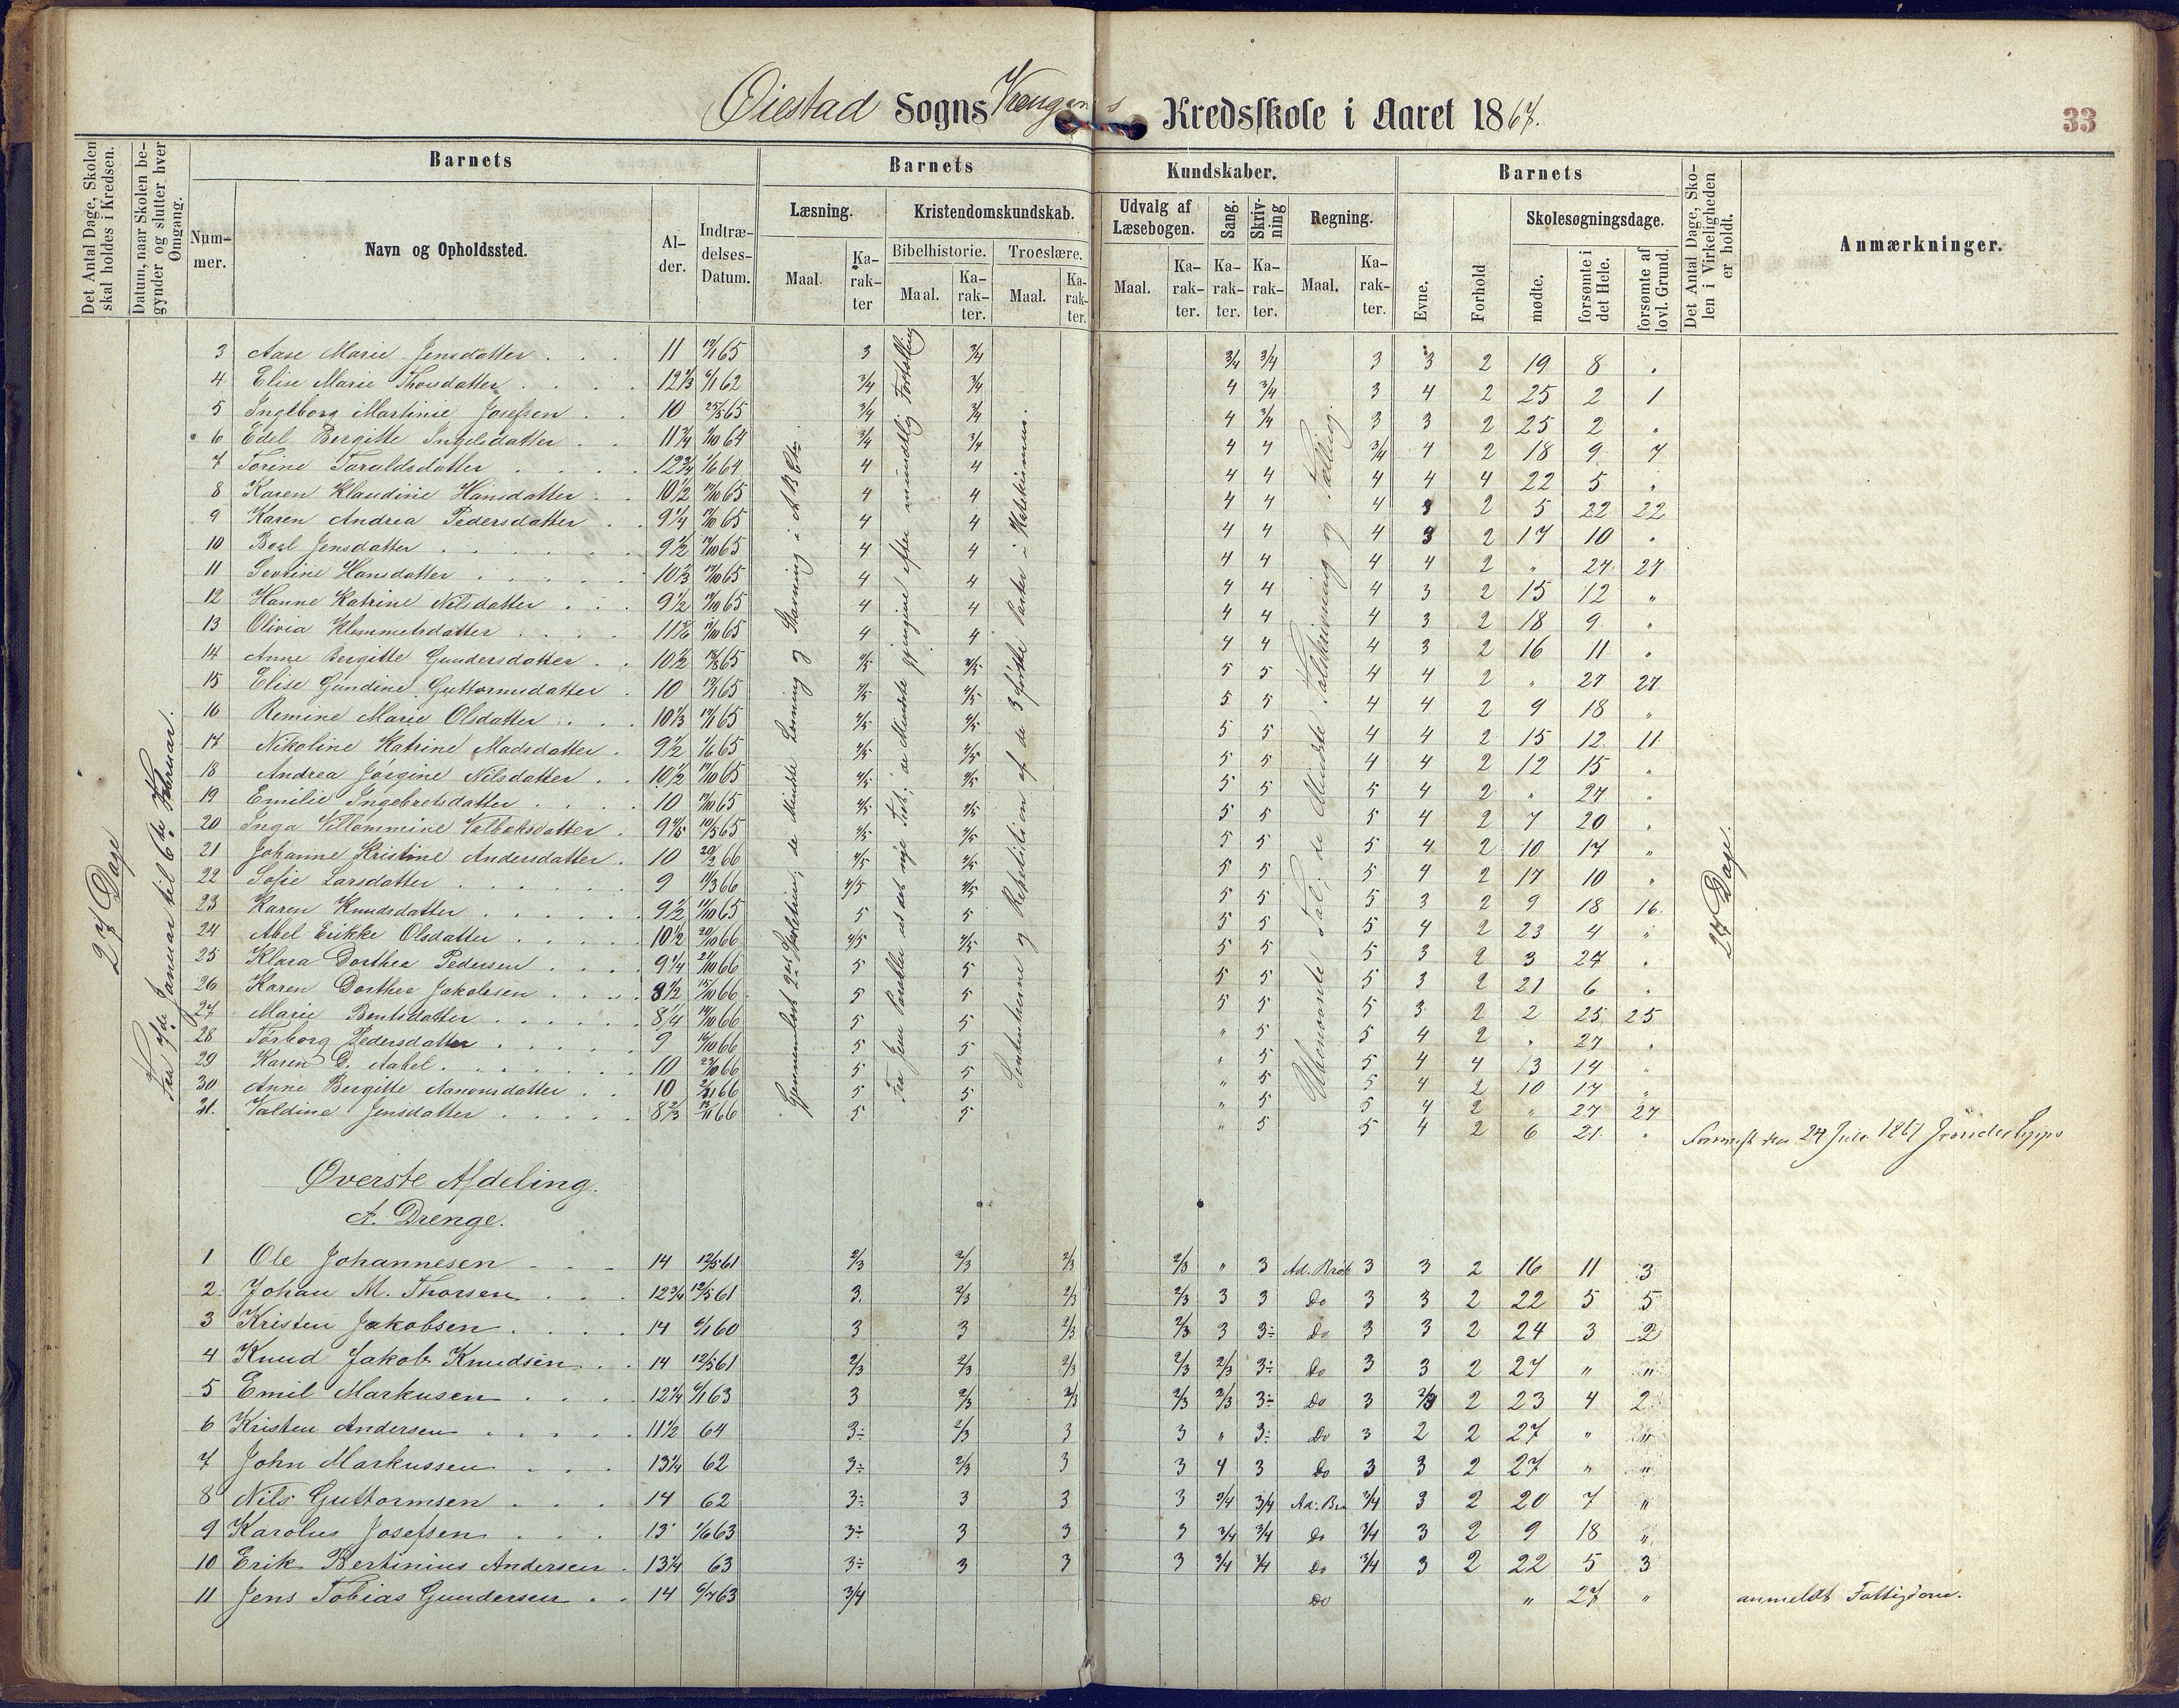 Øiestad Sogns Kredsskole i Aaret 1867.
33
Det Antal Dage, Skolen skal holdes i Kredsen.
Datum, naar Skolen begynder og slutter hver Omgang.
Barnets
Barnets
Kundskaber.
Barnets
Det Antal Dage, Skolen i Virkeligheden er holdt.
Anmærkninger.
Nummer.
Navn og Opholdssted.
Alder.
Indtrædelses-Datum.
Læsning.
Kristendomskundskab.
Udvalg af Læsebogen.
Sang.
Skrivning
Regning.
Evne.
Forhold
Skolesøgningsdage.
Bibelhistorie.
Troeslære.
Maal.
Karakter
Maal.
Karakter.
Maal.
Karakter.
Maal.
Karakter.
Karakter.
Karakter.
Maal.
Karakter.
mødte.
forsømte i det Hele.
forsømte af lovl. Grund.
27 Dage
Fra 7de Januar til 6te Februar.
27 Dage.
3 Aase Marie Jensdatter 11 65 3 3/4 3/4 3/4 3 3 2 19 8 "
4 Elise Marie Thorsdatter 12 1/3 62 3/4 3/4 4 3/4 3 4 2 25 2 1
5 Ingeborg Martinie Josefsen 10 25/5 65 3/4 3/4 4 3/4 3 3 2 25 2 "
6 Edel Bergitte Ingelsdatter 11 3/4 64 3/4 3/4 4 4 3/4 4 2 18 9 7
7 Torine Taraldsdatter 12 3/4 1/6 64 4 4 4 4 4 4 4 22 5 "
8 Karen Klaudine Hansdatter 10 1/2 65 4 4 4 4 4 3 2 5 22 22
9 Karen Andrea Pedersdatter 9 1/4 65 4 4 4 4 4 3 2 17 10 "
10 Boel Jensdatter 9 1/2 65 4 4 4 4 4 4 2 " 27 27
11 Sevrine Hansdatter 10 1/3 65 4 4 4 4 4 3 2 15 12 "
12 Hanne Katrine Nilsdatter 9 1/2 65 4 4 4 4 4 3 2 18 9 "
13 Olivia Klemmetsdatter 65 4 4 4 4 4 3 2 16 11 "
14 Anne Bergitte Gundersdatter 10 1/2 65 4/5 4/5 5 5 4 4 2 " 27 27
15 Elise Gundine Guttormsdatter 10 65 4/5 4/5 5 5 4 4 2 9 18 "
16 Remine Marie Olsdatter 10 1/3 65 4/5 4/5 5 5 4 4 2 15 12 11
17 Nikoline Katrine Madsdatter 9 1/2 1/6 65 4/5 4/5 5 5 4 4 2 12 15 "
18 Andrea Jørgine Nilsdatter 10 1/2 65 4/5 4/5 5 5 5 4 2 " 27 "
19 Emilie Ingebretsdatter 10 65 4/5 4/5 5 5 5 4 2 7 20 "
20 Inga Villommine Valboksdatter 65 4/5 4/5 5 5 5 4 2 10 17 "
21 Johanne Kristine Andersdatter 10 66 4/5 4/5 5 5 5 4 2 17 10 "
22 Sofie Larsdatter 9 66 4/5 4/5 5 5 5 3 2 9 18 16
23 Karen Knudsdatter 9 1/2 65 5 5 5 5 5 4 2 23 4 "
24 Abel Erikke Olsdatter 10 1/2 66 4/5 4/5 5 5 5 3 2 3 27 "
25 Klara Dorthea Pedersen 9 1/4 66 5 5 5 5 5 3 2 21 6 "
26 Karen Dorthea Jakobsen 8 1/2 66 5 5 5 5 5 3 2 2 25 25
27 Marie Bentsdatter 8 1/4 66 5 5 " 5 5 4 2 " 27 "
28 Torborg Pedersdatter 9 66 5 5 " 5 5 4 4 13 14 "
29 Karen D. Aabel 10 66 5 5 " 5 5 4 2 10 17 "
30 Anne Bergitte Aanonsdatter 10 66 5 5 " 5 5 4 2 " 27 27
31 Valdine Jensdatter 8 2/3 66 5 5 " 5 5 4 2 6 21 "
Gjennemlæst 2det Skoletrin; de Mindste Læsning og Stavning i ABCen.
Fra Jesu Parabler ud det nye Test.; de Mindste gjengive efter mundtlig Fortælling
Sententserne og Repetition af de 3 første Parter i Katekismus.
Ubenævnte Tal; de Mindste Talskrivning og Tælling.
Øverste Afdeling.
A. Drenge.
1 Ole Johannesen 14 12/5 61 2/3 2/3 2/3 2/3 " 3 Ad. Brøk 3 3 2 16 11 3
2 Johan M. Thorsen 12 3/4 12/5 61 3 2/3 2/3 2/3 3 3 Do 3 3 2 22 5 5
3 Kristen Jakobsen 14 6/1 60 3 3 2/3 2/3 3 3÷ Do 3 3 2 24 3 2
4 Knud Jakob Knudsen 14 12/5 61 2/3 2/3 2/3 2/3 2/3 3÷ Do 3 3 2 27 " "
5 Emil Markusen 12 1/4 6/1 63 3 2/3 2/3 2/3 2/3 3÷ Do 3 2/3 2 23 4 2
6 Kristen Andersen 11 1/2 64 3÷ 2/3 3 3 " 3÷ Do 3 2 2 27 " "
7 John Markussen 13 1/4 62 3÷ 2/3 3 3 4 3 Do 3 3 2 27 " "
8 Nils Guttormsen 14 62 3÷ 3 3 3 3/4 3/4 Ad. Br 3/4 3 2 20 7 "
9 Karolus Josefsen 13 1/6 63 3÷ 3 3 3 3/4 3/4 Do 3/4 3 2 9 18 "
10 Erik Bertinius Andersen 13 1/4 63 3÷ 3 3 3 3/4 3/4 Do 3/4 3 2 22 5 3
11 Jens Tobias Gundersen 14 63 3/4 Do " 27 " anmeldt Fattigdom.